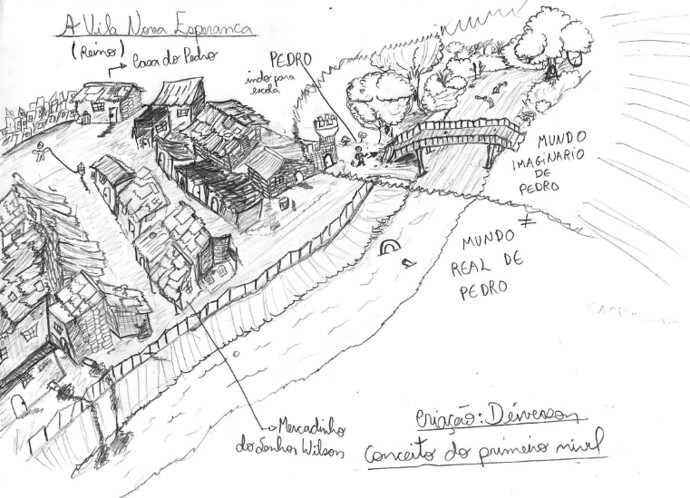 A Vila Nova Esperanca
(Reino)
Casa do Pedro
PEDRO
indo para
escola
MUNDO
IMAGINARIO
DE
PEDRO
≠
MUNDO
REAL DE
PEDRO
Mercadinho
do Senhor Wilson
Criação: Deiverson
Conceito do primeiro nivel